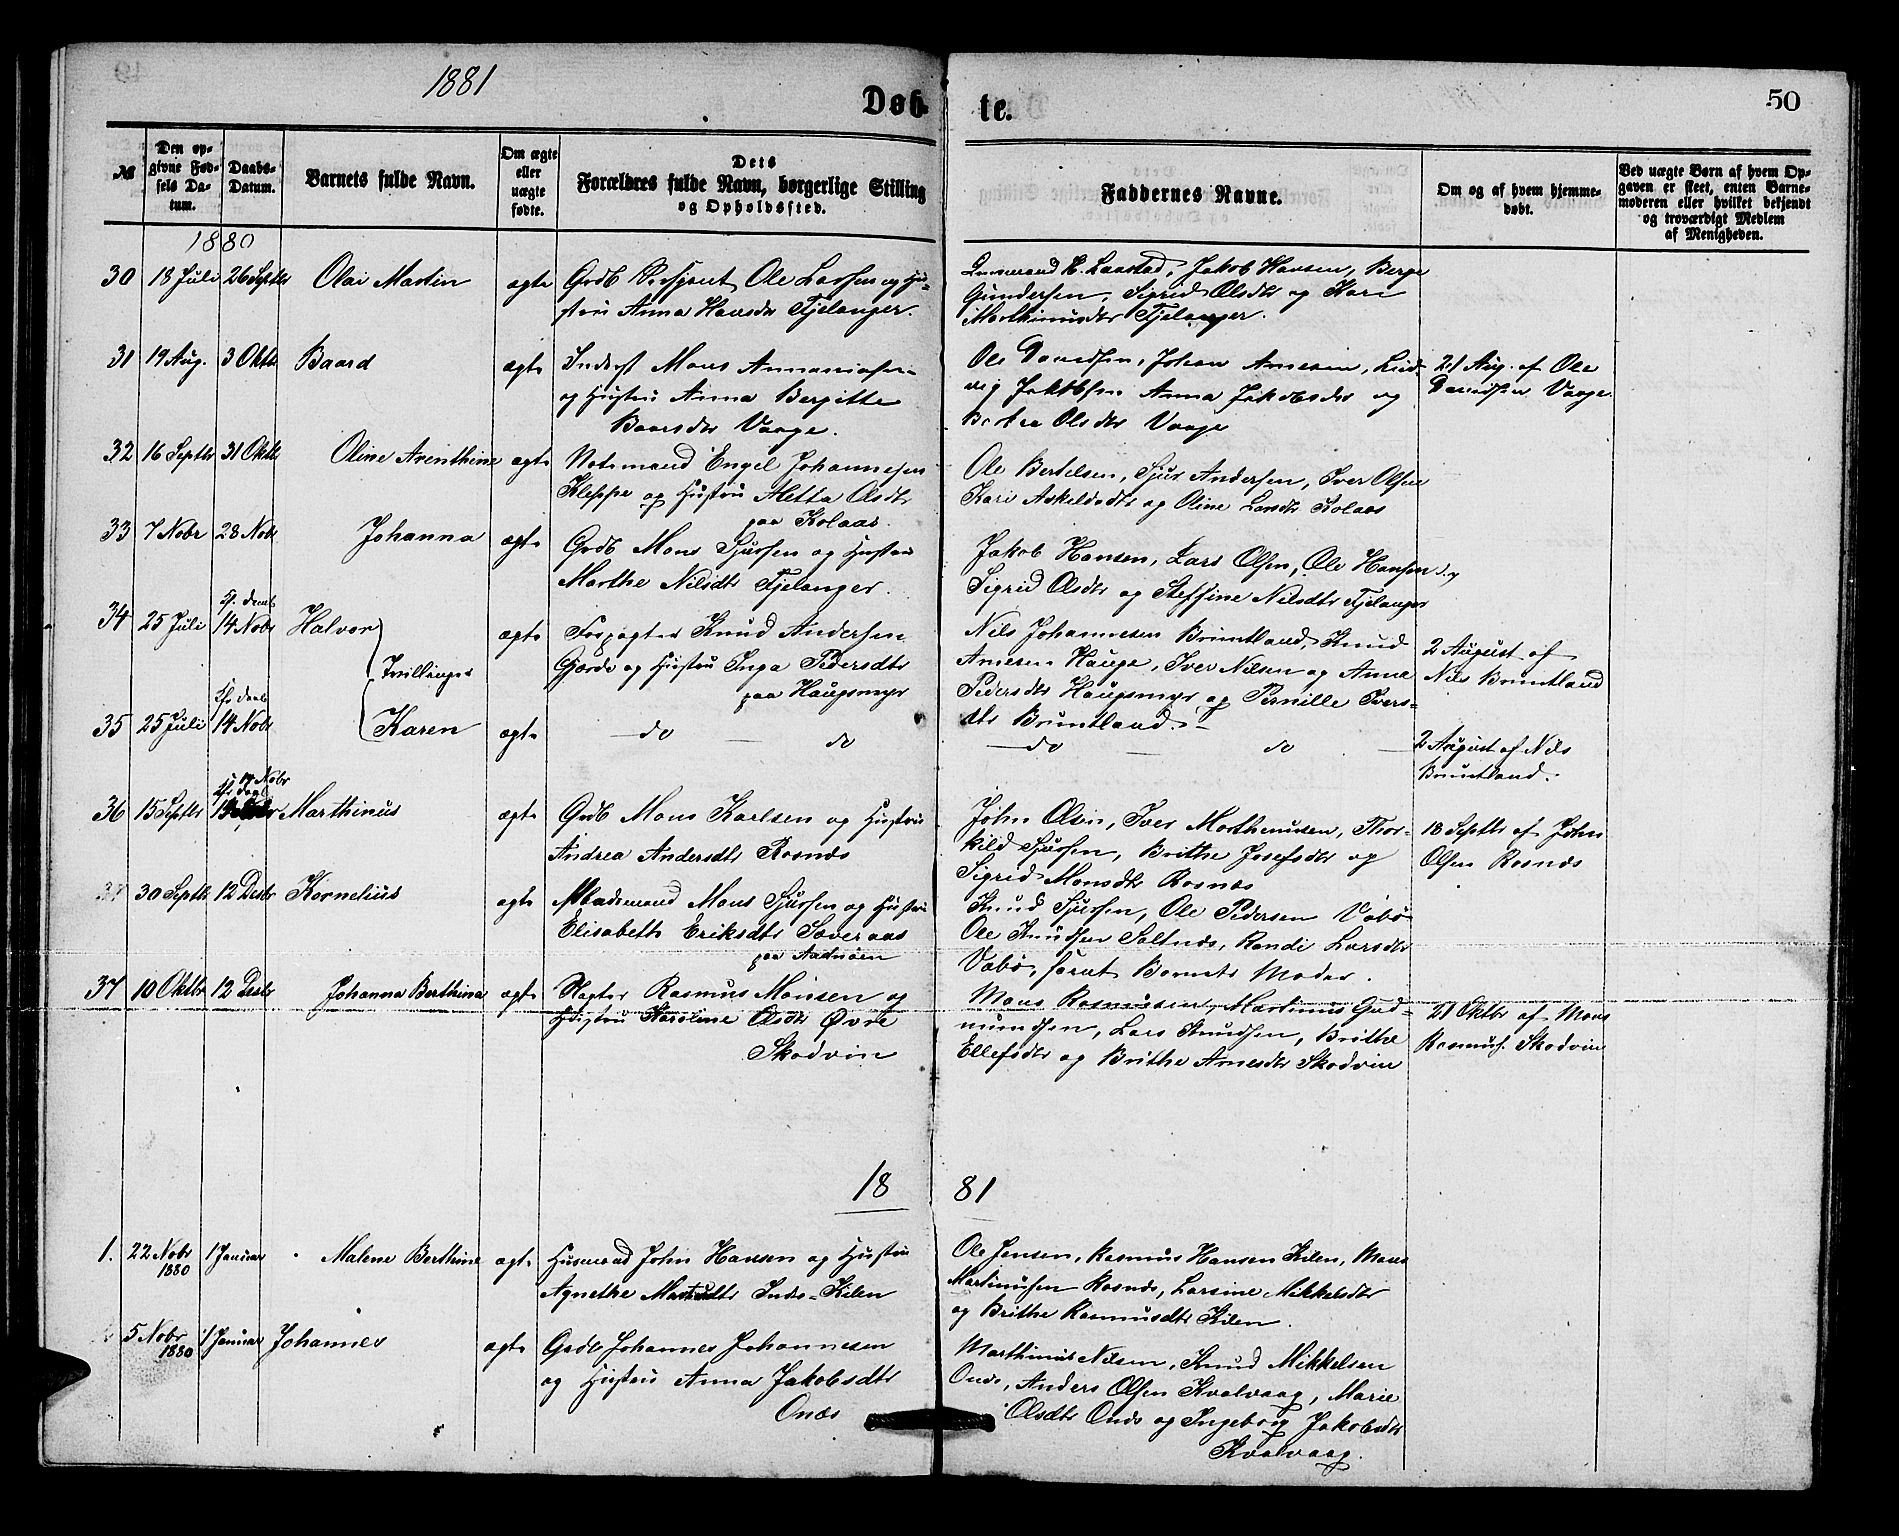 1881
Døb
te.
50
№
Den op-
givne Fød-
sels Da-
tum.
Daabs-
Datum.
Barnets fulde Navn.
Om ægte
eller
uægte
fødte.
Dets
Forældres fulde Navn, borgerlige Stilling
og Opholdssted.
Faddernes Navne.
Om og af hvem hjemme-
døbt.
Ved uægte Børn af hvem Op-
gaven er skeet, enten Barne-
moderen eller hvilket bekjendt
og troværdigt Medlem
af Menigheden.
1880
30 18 Juli 26 Septbr Olai Martin ægte Grdb Ole Larsen og Hu-
stru Anna Hansdtr Fjelanger.
Laastad, Jakob Hansen, Berge
Gundersen, Sigrid Olsdtr og Kari
Marthinusdtr Fjelanger.
31 19 Aug. 3 Oktbr Baard ægte Inderst Mons Annaniasen
og Hustru Anna Bergitte
Baarsdtr Vaage.
Ole Davidsen, Johan Arnesen, Lud-
vig Jakobsen Anna Jakobsdtr og
Olsdtr Vaage
21 Aug. af Ole
Davidsen Vaage
32 16 Septbr 31 Oktbr Oline Arenthine ægte Notemand Engel Johannesen
Kleppe og Hustru Metta Olsdtr
paa Kolaas.
Ole Bertelsen, Sjur Andersen, Iver Olsen
Kari Askeldsdtr og Oline Larsdtr Kolaas
33 7 Nobr 28 Nobr Johanna ægte Grdb Mons Sjursen og Hustru
Marthe Nilsdtr Fjelanger.
Jakob Hansen, Lars Olsen, Ole Hansen
Sigrid Olsdtr og Steffine Nilsdtr Fjelanger
34 25 Juli 14 Nobr Halvor ægte Forpagter Knud Andersen
Gjerde og Hustru Inga Pedersdtr
paa Haugsmyr
Tvillinger
Nils Johannesen Bruntland, Knud
Arnesen Hauge, Iver Nilsen og Anne
Pedersdtr Haugsmyr og Pernille Ivers-
dtr Bruntland.
2 August af
Nils Bruntland
35 25 Juli 14 Nobr Karen ægte do do
do do
2 August af Nils
Bruntland.
14 Nobr
36 15 Septbr Marthinus ægte Grdb Mons Karlsen og Hustru
Andrea Andersdtr Rosnæs
John Olsen, Iver Marthinusen, Thor-
kild Sjursen, Brithe Josefsdtr og
Sigrid Monsdtr Rosnæs
18 Septbr af John
Olsen Rosnæs
37 30 Septbr 12 Desbr Kornelius ægte Mons Sjursen og Hustru
Elisabeth Eriksdtr Sæveraas
paa
Knud Sjursen, Ole Pedersen Vabø
Ole Knudsen Saltnæs, Randi Larsdtr
Vabø, samt Barnets Moder.
37 10 Oktbr 12 Desbr Johanna Berthina ægte Slagter Rasmus Monsen og
Hustru Karoline Olsdtr Øvre
Skodvin
Mons Rasmussen, Martinus Gud-
mundsen, Lars Knudsen, Brithe
Ellefsdtr og Brithe Arnesdtr Skodvin
21 Oktbr af Mons
Rasmus. Skodvin
18 81
1. 22 Nobr 1 Januar Malene Berthine ægte Husmand John Hansen og Hustru
1880
Agnethe Indre-Kilen
Ole Jensen, Rasmus Hansen Kilen, Mons
Martinusen Rosnæs, Larsine Mikkelsdtr
og Brithe Rasmusdtr Kilen.
5 Nobr 1 Januar Johannes ægte Grdb Johannes Johannesen
1880
og Hustru Anna Jakobsdtr
Onæs
Marthinus Nilsen, Knud Mikkelsen
Onæs, Anders Olsen Kvalvaag, Marie
Olsdtr Onæs og Ingeborg Jakobsdtr
Kvalvaag.